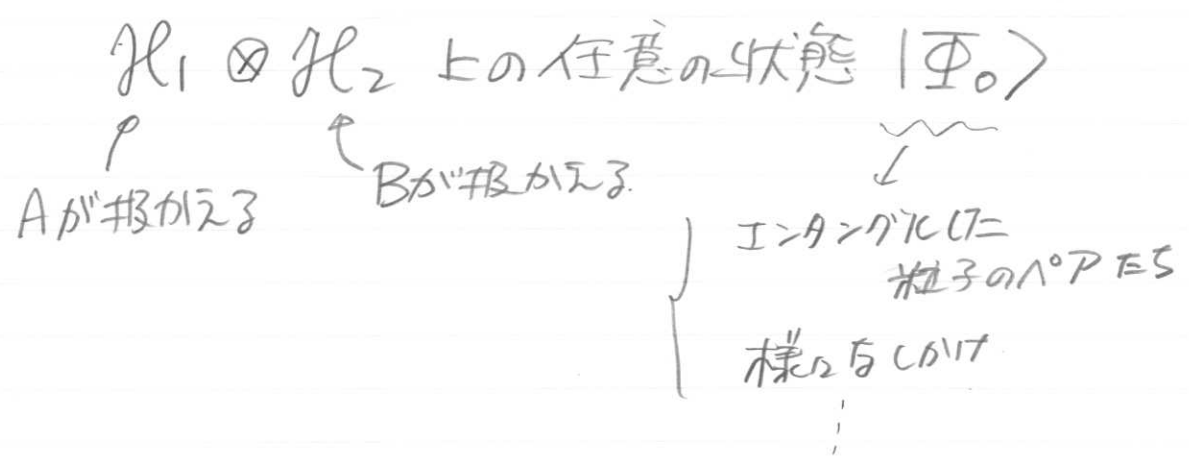 ℋ₁ ⊗ ℋ₂ 上の任意の状態 |Φ₀〉
Aが扱かえる
Bが扱かえる
エンタングルした
粒子のペアたち
様々なしかけ